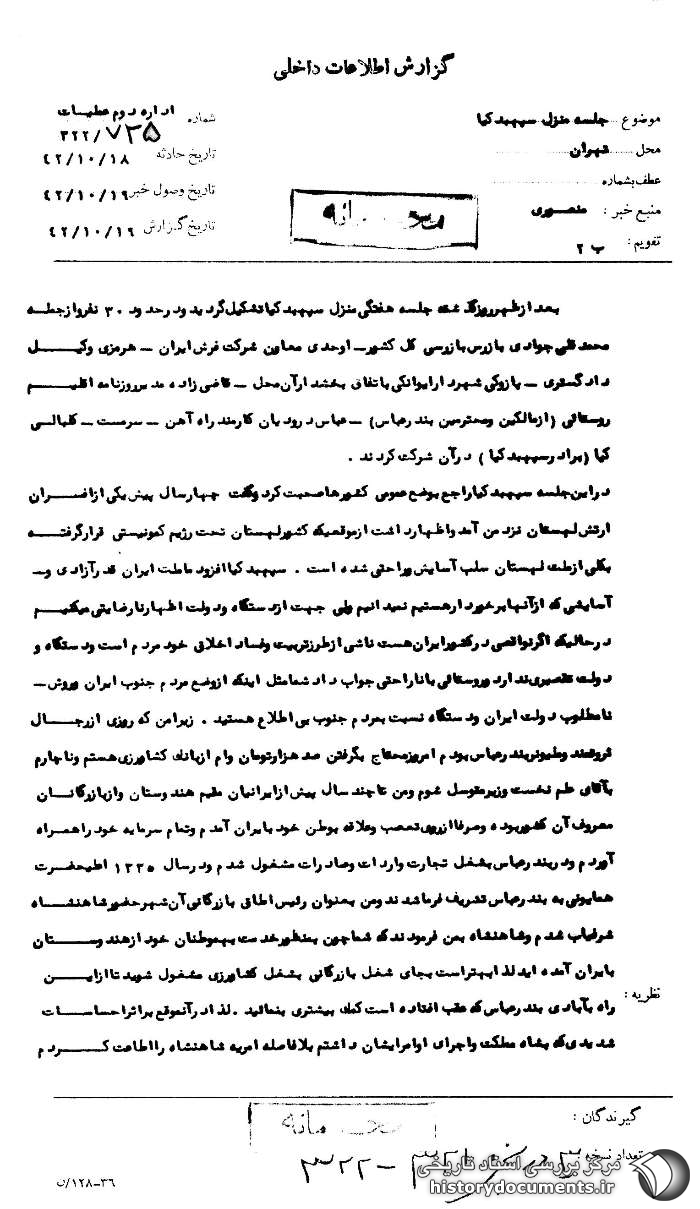 گزارش اطلاعات داخلی
موضوع جلسه منزل سپهبد کیا
محل تهران
عطف بشماره
منبع خبر : منصوری
تقویم : ب ۲
اداره دوم عملیات
شماره ۳۲۲/۷۲۵
تاریخ حادثه ۴۲/۱۰/۱۸
تاریخ وصول خبر ۴۲/۱۰/۱۹
تاریخ گزارش ۴۲/۱۰/۱۹
محرمانه
بعد از ظهر روز گذشته جلسه هفتگی منزل سپهبد کیا تشکیل گردید و در حدود ۳۰ نفر و از جمله
محمد قلی جوادی بازرس بازرسی کل کشور ـ اوحدی معاون شرکت فرش ایران ـ هرمزی وکیل
دادگستری ـ پازوکی شهردار ایوانکی باتفاق بخشدار آن محل ـ قاضی زاده مدیر روزنامه اقلیم
روستائی (از مالکین و محترمین بندرعباس) ـ عباس درودیان کارمند راه آهن ـ سرمست ـ کلبالی
کیا (برادر سپهبد کیا) در آن شرکت کردند .
در این جلسه سپهبد کیا راجع بوضع عمومی کشورها صحبت کرد و گفت چهار سال پیش یکی از افسران
ارتش لهستان نزد من آمد و اظهار داشت از موقعیکه کشور لهستان تحت رژیم کمونیستی قرار گرفته
بکلی از ملت لهستان سلب آسایش و راحتی شده است . سپهبد کیا افزود ما ملت ایران قدر آزادی و ـ
آسایشی که از آنها برخوردار هستیم نمیدانیم ولی جهت از دستگاه و دولت اظهار نارضایتی میکنیم
در حالیکه اگر نواقصی در کشور ایران هست ناشی از طرز تربیت و فساد اخلاق خود مردم است و دستگاه و
دولت تقصیری ندارد و روستائی با ناراحتی جواب داد شما مثل اینکه از وضع مردم جنوب ایران و روش ـ
نامطلوب دولت ایران و دستگاه نسبت بمردم جنوب بی اطلاع هستید . زیرا من که روزی از رجال
ثروتمند و ملیونر بندرعباس بودم امروز محتاج بگرفتن صد هزار تومان وام از بانک کشاورزی هستم و ناچارم
بآقای علم نخست وزیر متوسل شوم و من تا چند سال پیش از ایرانیان مقیم هندوستان و از بازرگانان
معروف آن کشور بوده و صرفا از روی تعصب و علاقه بوطن خود بایران آمدم و تمام سرمایه خود را همراه
آوردم و در بندرعباس بشغل تجارت واردات و صادرات مشغول شدم و در سال ۱۳۳۵ اعلیحضرت
همایونی به بندرعباس تشریف فرما شدند و من بعنوان رئیس اطاق بازرگانی آن شهر حضور شاهنشاه
شرفیاب شدم و شاهنشاه بمن فرمودند که شما چون بمنظور خدمت بهموطنان خود از هندوستان
بایران آمده اید لذا بهتر است بجای شغل بازرگانی بشغل کشاورزی مشغول شوید تا از این
نظریه :
راه بآبادی بندرعباس که عقب افتاده است کمک بیشتری بنمائید . لذا در آنموقع بر اثر احساسات
شدیدی که بشاه مملکت و اجرای اوامر ایشان داشتم بلافاصله امریه شاهنشاه را اطاعت کردم
گیرندگان :
محرمانه
تعداد نسخه
۳۲۲
۳۶-۱۲۸/ن
مرکز بررسی اسناد تاریخی
historydocuments.ir